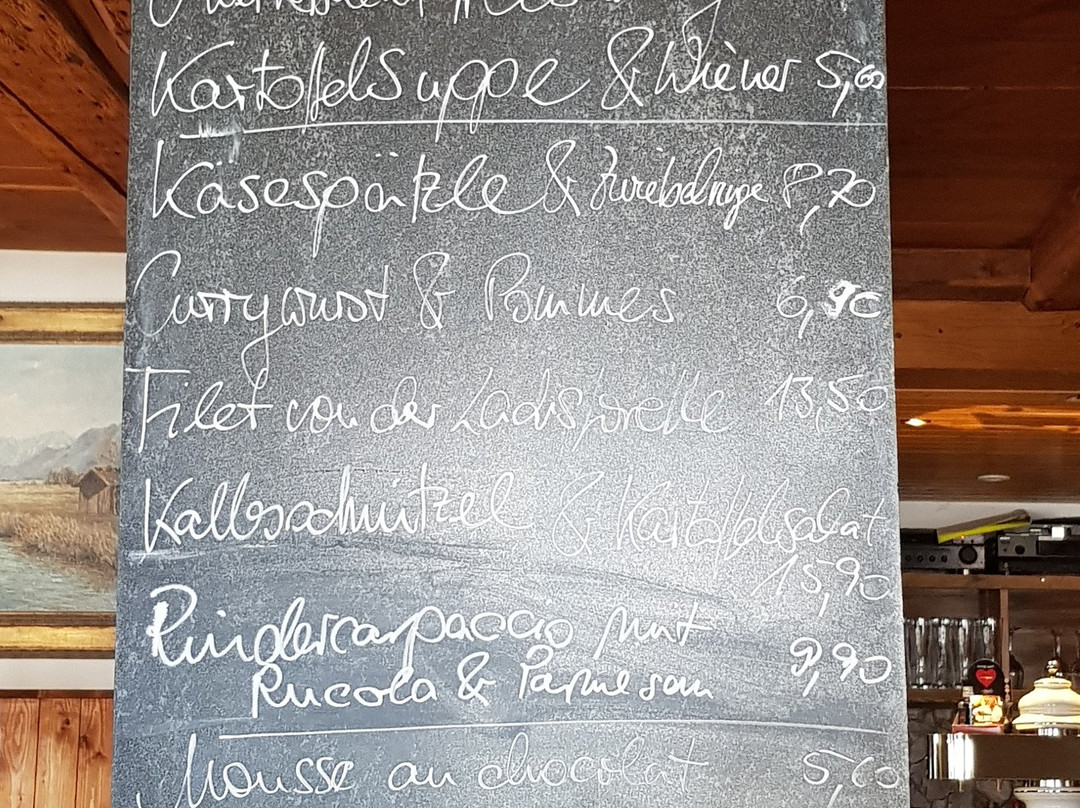 Kartoffelsuppe & Wiener 5,60
Käsespätzle & Zwiebelringe 8,70
Currywurst & Pommes 6,90
Filet von der Lachsforelle 13,50
Kalbsschnitzel & Kartoffelsalat
15,90
Rindercarpaccio mit
Rucola & Parmesan 9,90
Mousse au chocolat 5,60